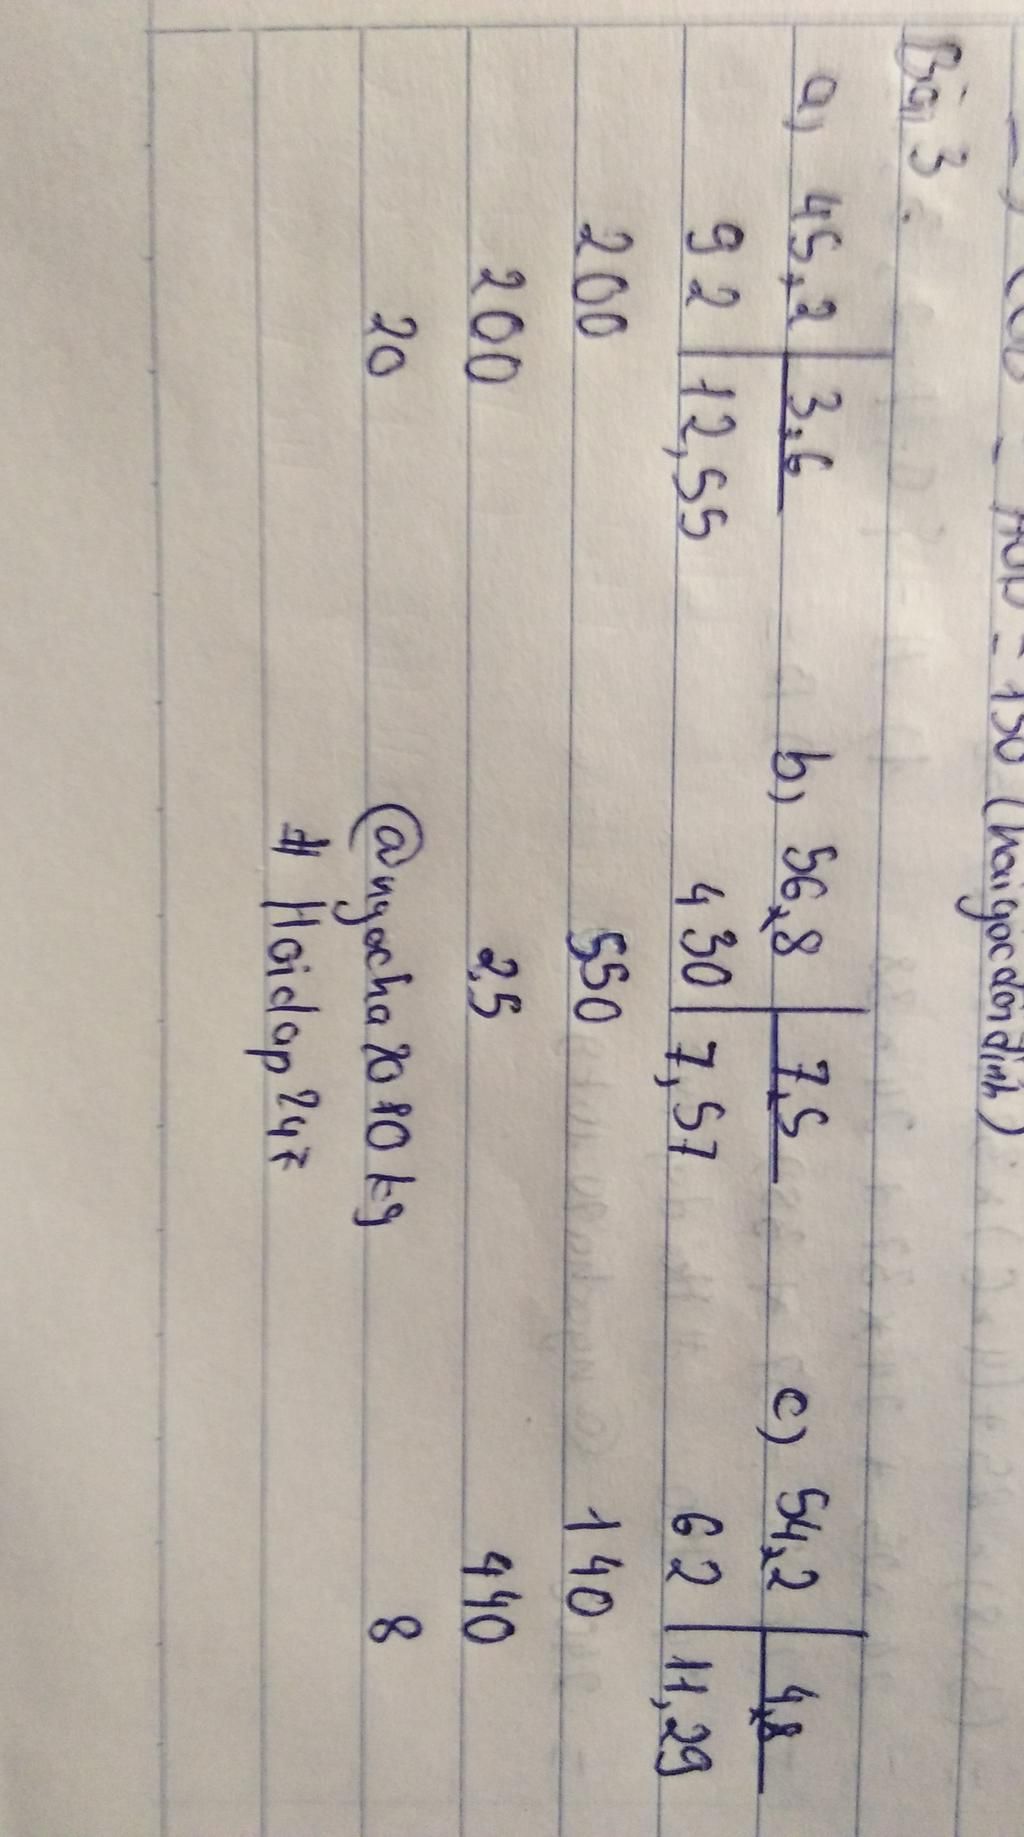 = 150 (hai góc đối đỉnh)
Bài 3:
a, 45,2 3,6 b, 56,8 7,5 c) 54,2 4,8
92 12,55 430 7,57 62 11,29
200 550 140
200 25 440
20 @ngocha2010kg 8
# Hoidap247